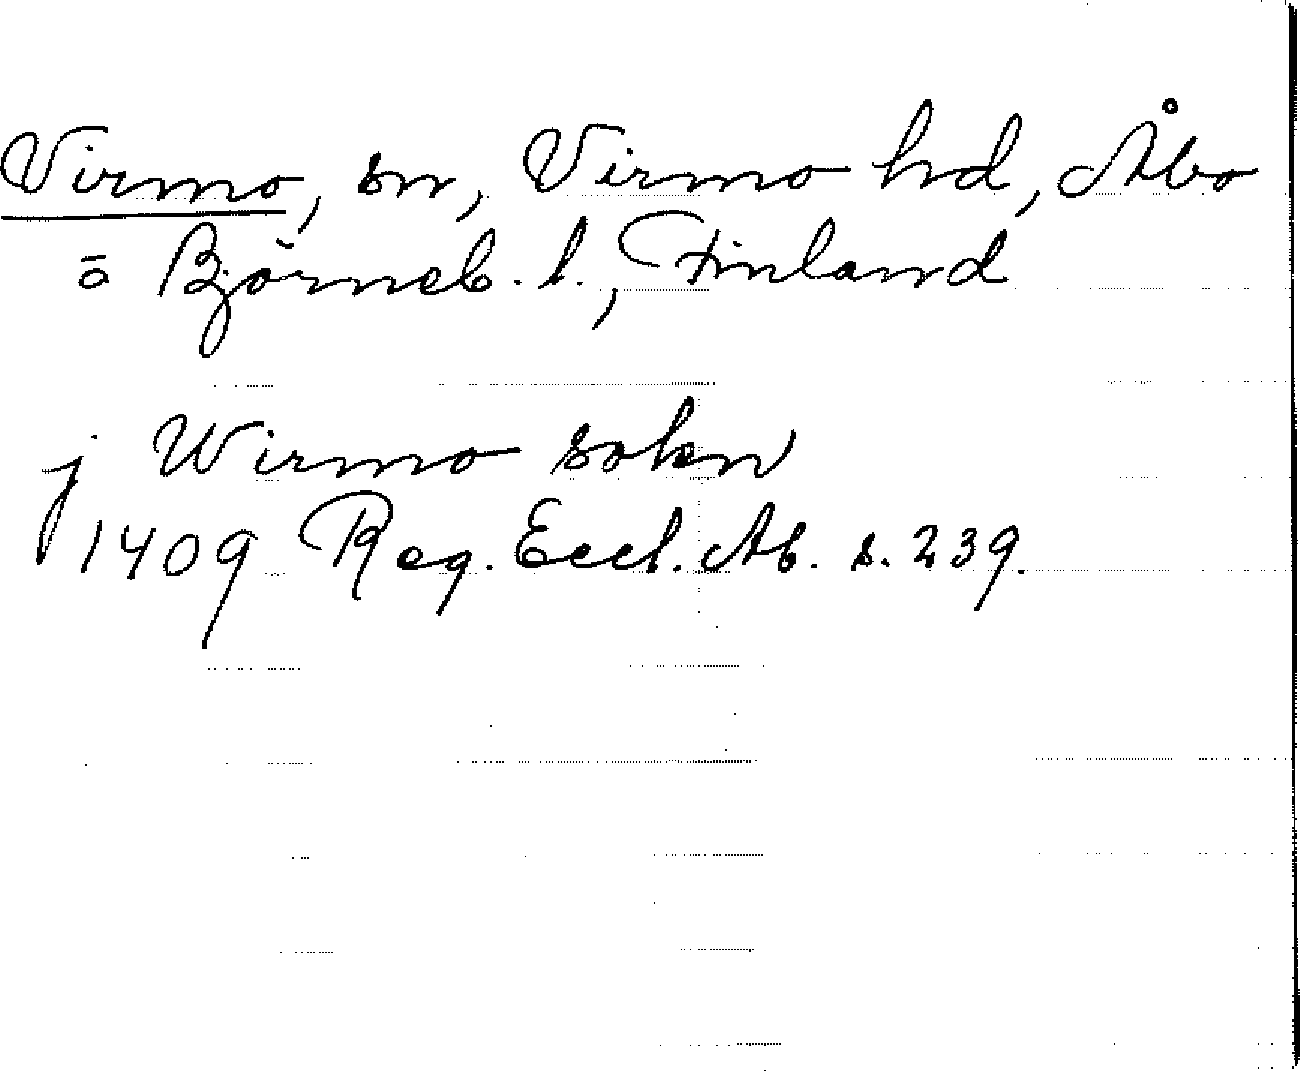 Virmo, sn, Virmo hd, Åbo
ō Björneb. l., Finland
j Wirmo sokn
1409 Reg. Eccl. Ab. s. 239.